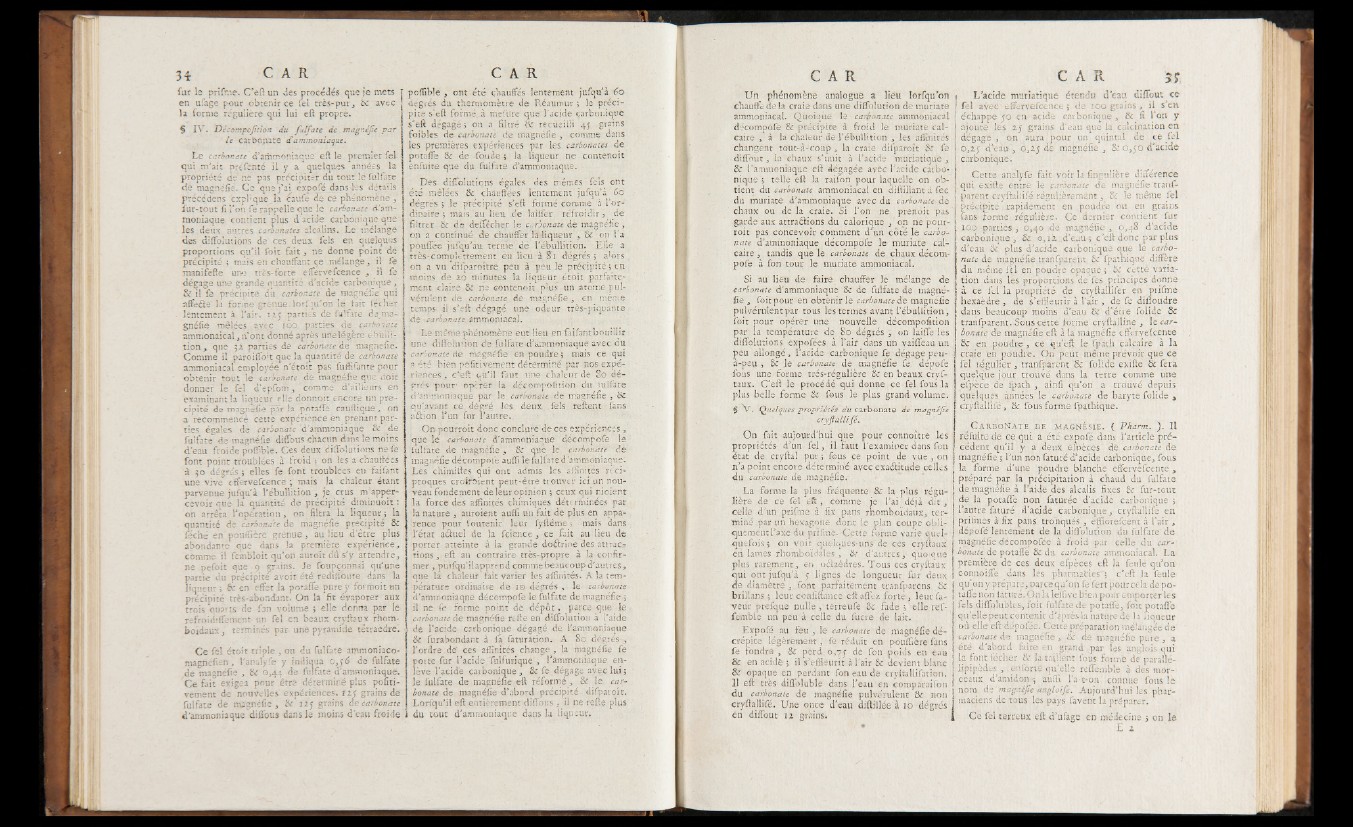 34 C A R
ſur le priſme. C'eſt un des procédés que je mets
en uſage pour obtenir ce ſel très-pur, & avec
la forme régulière qui lui eſt propre.
§ IV. Décompoſition du ſulfate de magnéſie par
le carbonate d'ammoniaque.
Le carbonate d'ammoniaque eſt le premier ſel
qui m'ait préſenté il y a quelques années la
propriété de ne pas précipiter du tout le ſulfate
de magnéſie. Ce que j'ai expoſé dans les détails
précédens explique la cauſe de ce phénomène,
ſur-tout ſi l'on ſe rappelle que le carbonate d'am-
moniaque contient plus d'acide carbonique que
les deux autres carbonates alcalins. Le mélange
des diſſolutions de ces deux ſels en quelques
proportions qu'il ſoit fait, ne donne point de
précipité; mais en chauffant ce mélange, il ſe
manifeſte une très-forte efferveſcence, il ſe
dégage une grande quantité d'acide carbonique,
& il ſe précipite du carbonate de magnéſie qui
affecte la forme grenue lorſqu'on le fait ſécher
lentement à l'air. 125 parties de ſulfate de ma-
gnéſie mêlées avec 100 parties de carbonate
ammoniacal, n'ont donné après une légère ébulli-
tion, que 32 parties de carbonate de magnéſie.
Comme il paroiſſoit que la quantité de carbonate
ammoniacal employée n'étoit pas ſuffiſante pour
obtenir tout le carbonate de magnéſie que doit
donner le ſel d'epſom, comme d'ailleurs en
examinant la liqueur elle donnoit encore un pré-
cipité de magnéſie par la potaſſe cauſtique, on
a recommencé cette expérience en prenant par-
ties égales de carbonate d'ammoniaque & de
ſulfate de magnéſie diſſous chacun dans le moins
d'eau froide poſſible. Ces deux diſſolutions ne ſe
ſont point troublées à froid; on les a chauffées
à 50 degrés; elles ſe ſont troublées en faiſant
une vive efferveſcence; mais la chaleur étant
parvenue juſqu'à l'ébullition, je crus m'apper-
cevoir que la quantité de précipité diminuoit:
on arrêta l'opération, on filtra la liqueur; la
quantité de carbonate de magnéſie précipité &
ſéché en pouſſière grenue, au lieu d'être plus
abondante que dans la première expérience,
comme il ſembloit qu'on auroit dû s'y attendre,
ne peſoit que 9 grains. Je ſoupçonnai qu'une
partie du précipité avoit été rediſſoute dans la
liqueur; & en effet la potaſſe pure y formoit un
précipité très-abondant. On la fit évaporer aux
trois quarts de ſon volume; elle donna par le
refroidiſſement un ſel en beaux cryſtaux rhom-
boïdaux, terminés par une pyramide tétraèdre.
Ce ſel étoit triple, ou du ſulfate ammoniaco-
magnéſien, l'analyſe y indiqua 0,56 de ſulfate
de magnéſie, & 0,44 de ſulfate d'ammoniaque.
Ce fait exigea pour être déterminé plus poſiti-
vement de nouvelles expériences. 125 grains de
ſulfate de magnéſie, & 125 grains de carbonate
d'ammoniaque diſſous dans le moins d'eau froide
C A R
poſſible, ont été chauffés lentement juſqu'à 60
degrés du thermomètre de Réaumur; le préci-
pité s'eſt formé à meſure que l'acide carbonique
s'eſt dégagé; on a filtré & recueilli 45 grains
foibles de carbonate de magnéſie, comme dans
les premières expériences par les carbonates de
potaſſe & de ſoude; la liqueur ne contenoit
enſuite que du ſulfate d'ammoniaque.
Des diſſolutions égales des mêmes ſels ont
été mêlées & chauffées lentement juſqu'à 60
dégrés; le précipité s'eſt formé comme à l'or-
dinaire; mais au lieu de laiſſer refroidir, de
filtrer & de deſſécher le carbonate de magnéſie,
on a continué de chauffer la liqueur, & on l'a
pouſſée juſqu'au terme de l'ébullition. Elle a
très-complètement eu lieu à 81 dégrés; alors
on a vu diſparoître peu à peu le précipité; en
moins de 20 minutes la liqueur étoit parfaite-
ment claire & ne contenoit plus un atome pul-
vérulent de carbonate de magnéſie, en même
temps il s'eſt dégagé une odeur très-piquante
de carbonate ammoniacal.
Le même phénomène eut lieu en faiſant bouillir
une diſſolution de ſulfate d'ammoniaque avec du
carbonate de magnéſie en poudre; mais ce qui
a été bien poſitivement déterminé par nos expé-
riences, c'eſt qu'il faut une chaleur de 80 dé-
grés pour opérer la décompoſition du ſulfate
d'ammoniaque par le carbonate de magnéſie, &
qu'avant ce dégré les deux ſels reſtent ſans
action l'un ſur l'autre.
On pourroit donc conclure de ces expériences,
que le carbonate d'ammoniaque décompoſe le
ſulfate de magnéſie, & que le carbonate de
magnéſie décompoſe auſſi le ſulfate d'ammoniaque.
Les chimiſtes qui ont admis les affinités réci-
proques croiroient peut-être trouver ici un nou-
veau fondement de leur opinion; ceux qui nioient
la force des affinités chimiques déterminées par
la nature, auroient auſſi un fait de plus en appa-
rence pour ſoutenir leur ſyſtême; mais dans
l'état actuel de la ſcience, ce fait au lieu de
porter atteinte à la grande doctrine des attrac-
tions, eſt au contraire très-propre à la confir-
mer, puiſqu'il apprend comme beaucoup d'autres,
que la chaleur fait varier les affinités. A la tem-
pérature ordinaire de 10 dégrés, le carbonate
d'ammoniaque décompoſe le ſulfate de magnéſie;
il ne ſe forme point de dépôt, parce que le
carbonate de magnéſie reſte en diſſolution à l'aide
de l'acide carbonique dégagé de l'ammoniaque
& ſurabondant à ſa ſaturation. A 80 dégrés,
l'ordre de ces affinités change, la magnéſie ſe
porte ſur l'acide ſulfurique, l'ammoniaque en-
lève l'acide carbonique, & ſe dégage avec lui;
le ſulfate de magnéſie eſt réformé, & le car-
bonate de magnéſie d'abord précipité diſparoît.
Lorſqu'il eſt entièrement diſſous, il ne reſte plus
du tout d'ammoniaque dans la liqueur.
C A R
Un phénomène analogue a lieu lorſqu'on
chauffe de la craie dans une diſſolution de muriate
ammoniacal. Quoique le carbonate ammoniacal
décompoſe & précipite à froid le muriate cal-
caire, à la chaleur de l'ébullition, les affinités
changent tout-à-coup, la craie diſparoît & ſe
diſſout, la chaux s'unit à l'acide muriatique,
& l'ammoniaque eſt dégagée avec l'acide carbo-
nique; telle eſt la raiſon pour laquelle on ob-
tient du carbonate ammoniacal en diſtillant à ſec
du muriate d'ammoniaque avec du carbonate de
chaux ou de la craie. Si l'on ne prenoit pas
garde aux attractions du calorique, on ne pour-
roit pas concevoir comment d'un côté le carbo-
nate d'ammoniaque décompoſe le muriate cal-
caire, tandis que le carbonate de chaux décom-
poſe à ſon tour le muriate ammoniacal.
Si au lieu de faire chauffer le mélange de
carbonate d'ammoniaque & de ſulfate de magné-
ſie, ſoit pour en obtenir le carbonate de magnéſie
pulvérulent par tous les termes avant l'ébullition,
ſoit pour opérer une nouvelle décompoſition
par la température de 80 dégrés, on laiſſe les
diſſolutions expoſées à l'air dans un vaiſſeau un
peu allongé, l'acide carbonique ſe dégage peu-
à-peu, & le carbonate de magnéſie ſe dépoſe
ſous une forme très-régulière & en beaux cryſ-
taux. C'eſt le procédé qui donne ce ſel ſous la
plus belle forme & ſous le plus grand volume.
§ V. Quelques propriétés du carbonate de magnéſie
cryſtalliſé.
On ſait aujourd'hui que pour connoître les
propriétés d'un ſel, il faut l'examiner dans ſon
état de cryſtal pur; ſous ce point de vue, on
n'a point encore déterminé avec exactitude celles
du carbonate de magnéſie.
La forme la plus fréquente & la plus régu-
lière de ce ſel eſt, comme je l'ai déjà dit,
celle d'un priſme à ſix pans rhomboïdaux, ter-
miné par un hexagone dont le plan coupe obli-
quement l'axe du priſme. Cette forme varie quel-
quefois; on voit quelques-uns de ces cryſtaux
en lames rhomboïdales, & d'autres, quoique
plus rarement, en octaèdres. Tous ces cryſtaux
qui ont juſqu'à 5 lignes de longueur ſur deux
de diamètre, ſont parfaitement tranſparens &
brillans; leur conſiſtance eſt aſſez forte, leur ſa-
veur preſque nulle, terreuſe & fade; elle reſ-
ſemble un peu à celle du ſucre de lait.
Expoſé au feu, le carbonate de magnéſie dé-
crépite légèrement, ſe réduit en pouſſière ſans
ſe fondre, & perd 0,75 de ſon poids en eau
& en acide; il s'effleurit à l'air & devient blanc
& opaque en perdant ſon eau de cryſtalliſation.
Il eſt très diſſoluble dans l'eau en comparaiſon
du carbonate de magnéſie pulvérulent & non
cryſtalliſé. Une once d'eau diſtillée à 10 dégrés
en diſſout 12 grains.
C A R 35
L'acide muriatique étendu d'eau diſſout ce
ſel avec efferveſcence; de 100 grains, il s'en
échappe 50 en acide carbonique, & ſi l'on y
ajoute les 25 grains d'eau que la calcination en
dégage, on aura pour un quintal de ce ſel
0,25 d'eau, 0,25 de magnéſie, & 0,50 d'acide
carbonique.
Cette analyſe fait voir la ſingulière différence
qui exiſte entre le carbonate de magnéſie tranſ-
parent cryſtalliſé régulièrement, & le même ſel
précipité rapidement en poudre ou en grains
ſans forme régulière. Ce dernier contient ſur
100 parties, 0,40 de magnéſie, 0,48 d'acide
carbonique, & 0,12 d'eau; c'eſt donc par plus
d'eau & plus d'acide carbonique que le carbo-
nate de magnéſie tranſparent & ſpathique diffère
du même ſel en poudre opaque; & cette varia-
tion dans les proportions de ſes principes donne
à ce ſel la propriété de cryſtalliſer en priſme
hexaèdre, de s'effleurir à l'air, de ſe diſſoudre
dans beaucoup moins d'eau & d'être ſolide &
tranſparent. Sous cette forme cryſtalline, le car-
bonate de magnéſie eſt à la magnéſie efferveſcente
& en poudre, ce qu'eſt le ſpath calcaire à la
craie en poudre. On peut même prévoir que ce
ſel régulier, tranſparent & ſolide exiſte & ſera
quelque jour trouvé dans la terre comme une
eſpèce de ſpath, ainſi qu'on a trouvé depuis
quelques années le carbonate de baryte ſolide,
cryſtalliſé, & ſous forme ſpathique.
CARBONATE DE MAGNÉSIE. ( Pharm. ). Il
réſulte de ce qui a été expoſé dans l'article pré-
cédent qu'il y a deux eſpèces de carbonate de
magnéſie; l'un non ſaturé d'acide carbonique, ſous
la forme d'une poudre blanche efferveſcente,
préparé par la précipitation à chaud du ſulfate
de magnéſie à l'aide des alcalis fixes & ſur-tout
de la potaſſe non ſaturée d'acide carbonique;
l'autre ſaturé d'acide carbonique, cryſtalliſé en
priſmes à ſix pans tronqués, effloreſcent à l'air,
dépoſé lentement de la diſſolution du ſulfate de
magnéſie décompoſée à froid par celle du car-
bonate de potaſſe & du carbonate ammoniacal. La
première de ces deux eſpèces eſt la ſeule qu'on
connoiſſe dans les pharmacies; c'eſt la ſeule
qu'on y prépare, parce qu'on ſe ſert pour cela de po-
taſſe non ſaturée. On la leſſive bien pour emporter les
ſels diſſolubles, ſoit ſulfate de potaſſe, ſoit potaſſe
qu'elle peut contenir d'après la nature de la liqueur
où elle eſt dépoſée. Cette préparation mélangée de
carbonate de magnéſie, & de magnéſie pure, a
été d'abord faite en grand par les anglois qui
la font ſécher & la taillent ſous forme de parallé-
lipipèdes, enſorte qu'elle reſſemble à des mor-
ceaux d'amidon; auſſi l'a-t-on connue ſous le
nom de magnéſie angloiſe. Aujourd'hui les phar-
maciens de tous les pays ſavent la préparer.
Ce ſel terreux eſt d'uſage en médecine; on le
E 2